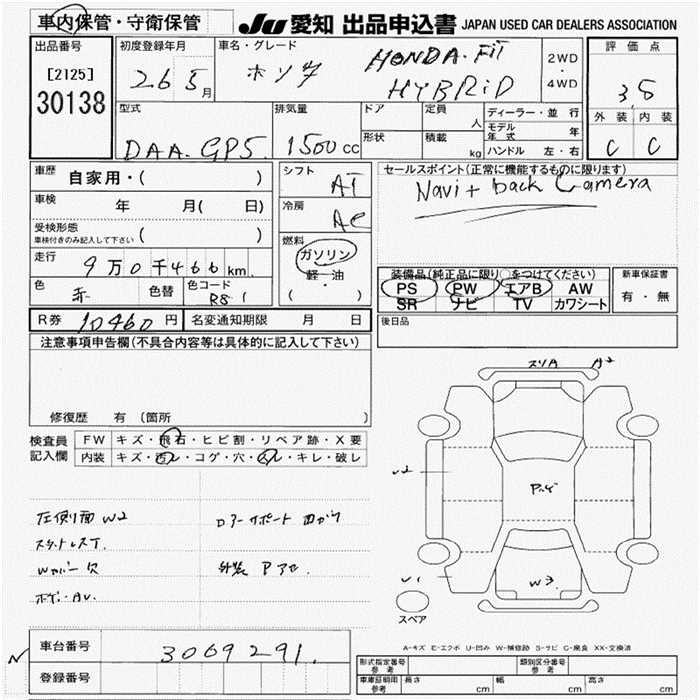 車内保管・守衛保管
JU 愛知 出品申込書 JAPAN USED CAR DEALERS ASSOCIATION
出品番号
[2125]
30138
初度登録年月
26 5月
車名・グレード
ホンダ HONDA. FIT
HYBRID
2WD
・
4WD
評価点
3.5
外装 内装
C C
型式
DAA. GP5.
排気量
1500cc
ドア
形状
定員 人
積載 kg
ディーラー・並行
モデル年式 年
ハンドル 左・右
車歴
自家用・( )
車検 年 月( 日)
受検形態
車検付きのみ記入して下さい ( )
走行
9万0千466km
色 赤 色替 色コード
R81
シフト
AT
冷房
AC
燃料
ガソリン
軽・油
( )
セールスポイント(正常に機能するものに限ります)
Navi + back Camera
装備品(純正品に限り○をつけてください)
PS PW エアB AW
SR ナビ TV カワシート
新車保証書
有・無
R券 10460円 名変通知期限 月 日
後日品
注意事項申告欄(不具合内容等は具体的に記入して下さい)
修復歴 有(箇所 )
検査員
記入欄
FW キズ・飛石・ヒビ割・リペア跡・X要
内装 キズ・汚レ・コゲ・穴・スレ・キレ・破レ
スリA A2
U2
W3
左側面 W2
スタットレスT.
外装
車台番号 3069291.
登録番号
スペア
A-キズ E-エクボ U-凹み W-補修跡 S-サビ C-腐食 XX-交換済
形式指定番号
参考
類別区分番号
参考
車庫証明用
参考
長さ cm 幅 cm 高さ cm